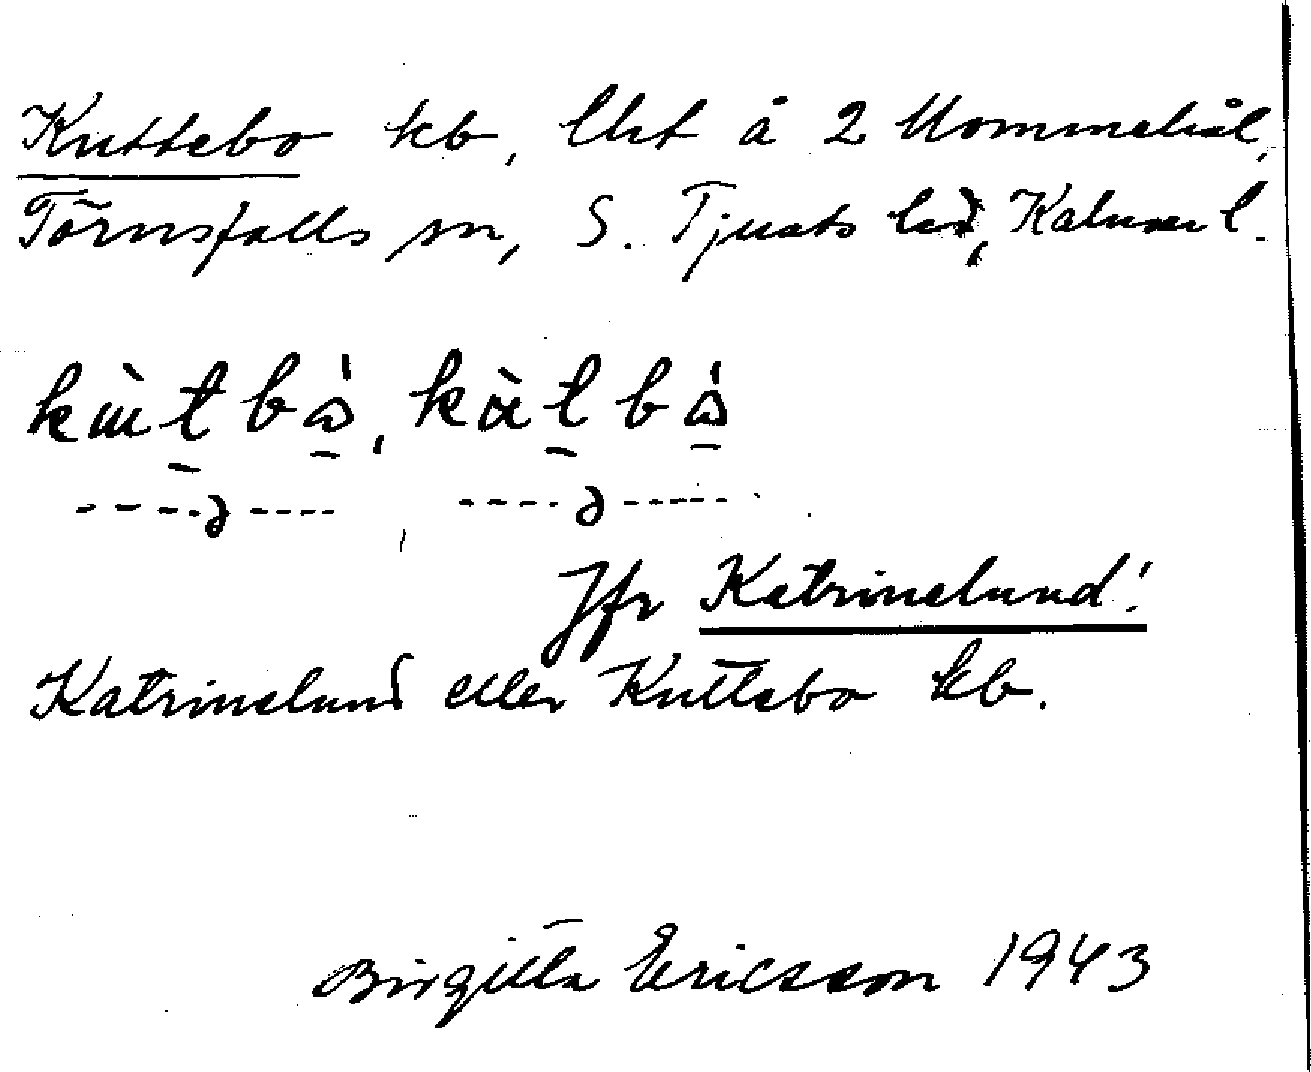 Kuttebo kb, lht å 2 Mommehål,
Törnsfalls sn, S. Tjusts hd, Kalmar l.
Jfr Katrinelund!
Katrinelund eller Kuttebo kb.
Birgitta Ericsson 1943